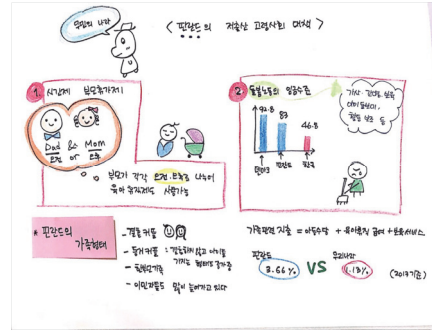 무민의 나라
< 핀란드의 저출산 고령사회 대책 >
1. 시간제 부모휴가제!
Dad & Mom
오전 or 오후
부모가 각각 오전, 오후로 나누어
육아 휴직제도 사용가능
2. 돌봄노동의 임금수준
가사, 간병, 보육
아이돌보미,
활동 보조 등
92.8
83
46.8
덴마크
핀란드
한국
* 핀란드의
가족형태
- 결혼 커플
- 동거 커플 : 결혼하지 않고 아이를
가지는 형태도 증가중
- 한부모가족
- 이민자들도 많이 늘어나고 있다
가족관련 지출 = 아동수당 + 육아휴직 급여 + 보육서비스
핀란드
3.66%
VS
우리나라
1.18%
(2013기준)